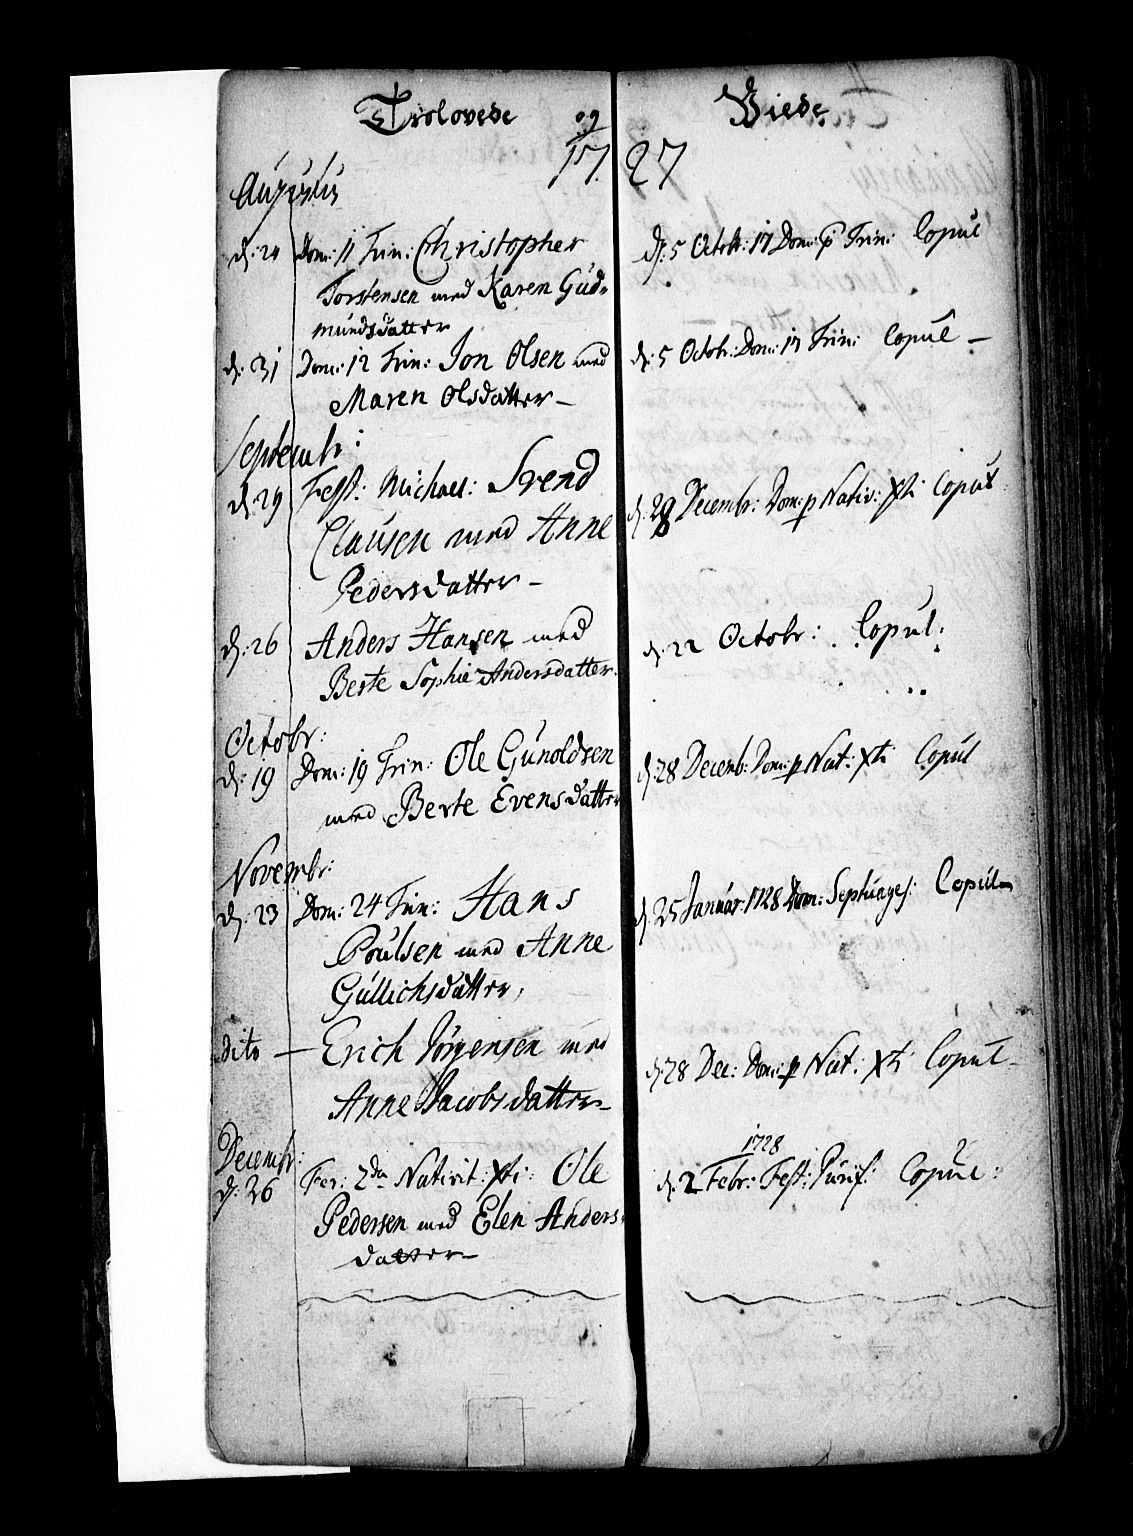 Trolovede og Viede
17 27
Augustus
d: 24 Dom: 11 Trin: Christopher d: 5 Octobr: 17 Dom: p Trin: Copul
Torstensen med Karen Gud-
mundsdatter
d: 31 Dom: 12 Trin: Jon Olsen med d: 5 Octobr: Dom: 17 Trin: Copul –
Maren Olsdatter –
Septembr:
d: 29 Fest: Michael: Svend d: 28 Decembr: Dom: p Nativ: Xti Copul
Clausen med Anne
Pedersdatter –
d: 26 Anders Hansen med d: 22 Octobr: Copul:
Berte Sophie Andersdatter
Octobr:
d: 19 Dom: 19 Trin: Ole Gunoldsen d: 28 Decemb: Dom: p Nat: Xti Copul
med Berte Evensdatter
Novembr:
d: 23 Dom: 24 Trin: Hans d: 25 Januar: 1728 Dom: Septuages: Copul
Poulsen med Anne
Gullichsdatter,
dito — Erich Jørgensen med d: 28 Dec: Dom: p Nat: Xti Copul –
Anne Jacobsdatter –
Decembr: 1728
d: 26 Fer: 2da Nativit: Xti: Ole d: 2 Febr: Fest: Purif: Copul:
Pedersen med Elen Anders
datter –